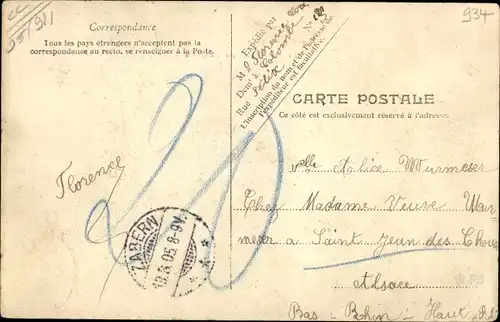 CC
05/921
934
Correspondance
Tous les pays étrangers n'acceptent pas la
correspondance au recto, se renseigner à la Poste.
Expédié par
M J. Florence
Demt à Colombe
Rue
L'inscription du nom et de l'adresse de
l'expéditeur est facultative.
CARTE POSTALE
Ce côté est exclusivement réservé à l'adresse
Florence
20
ZABERN
10.5.05.8-9V.
Mlle Alice Wurmeser
Chez Madame Veuve Wur
meser a Saint Jean des Choux
Alsace
Bas-Rhin-Haut-R